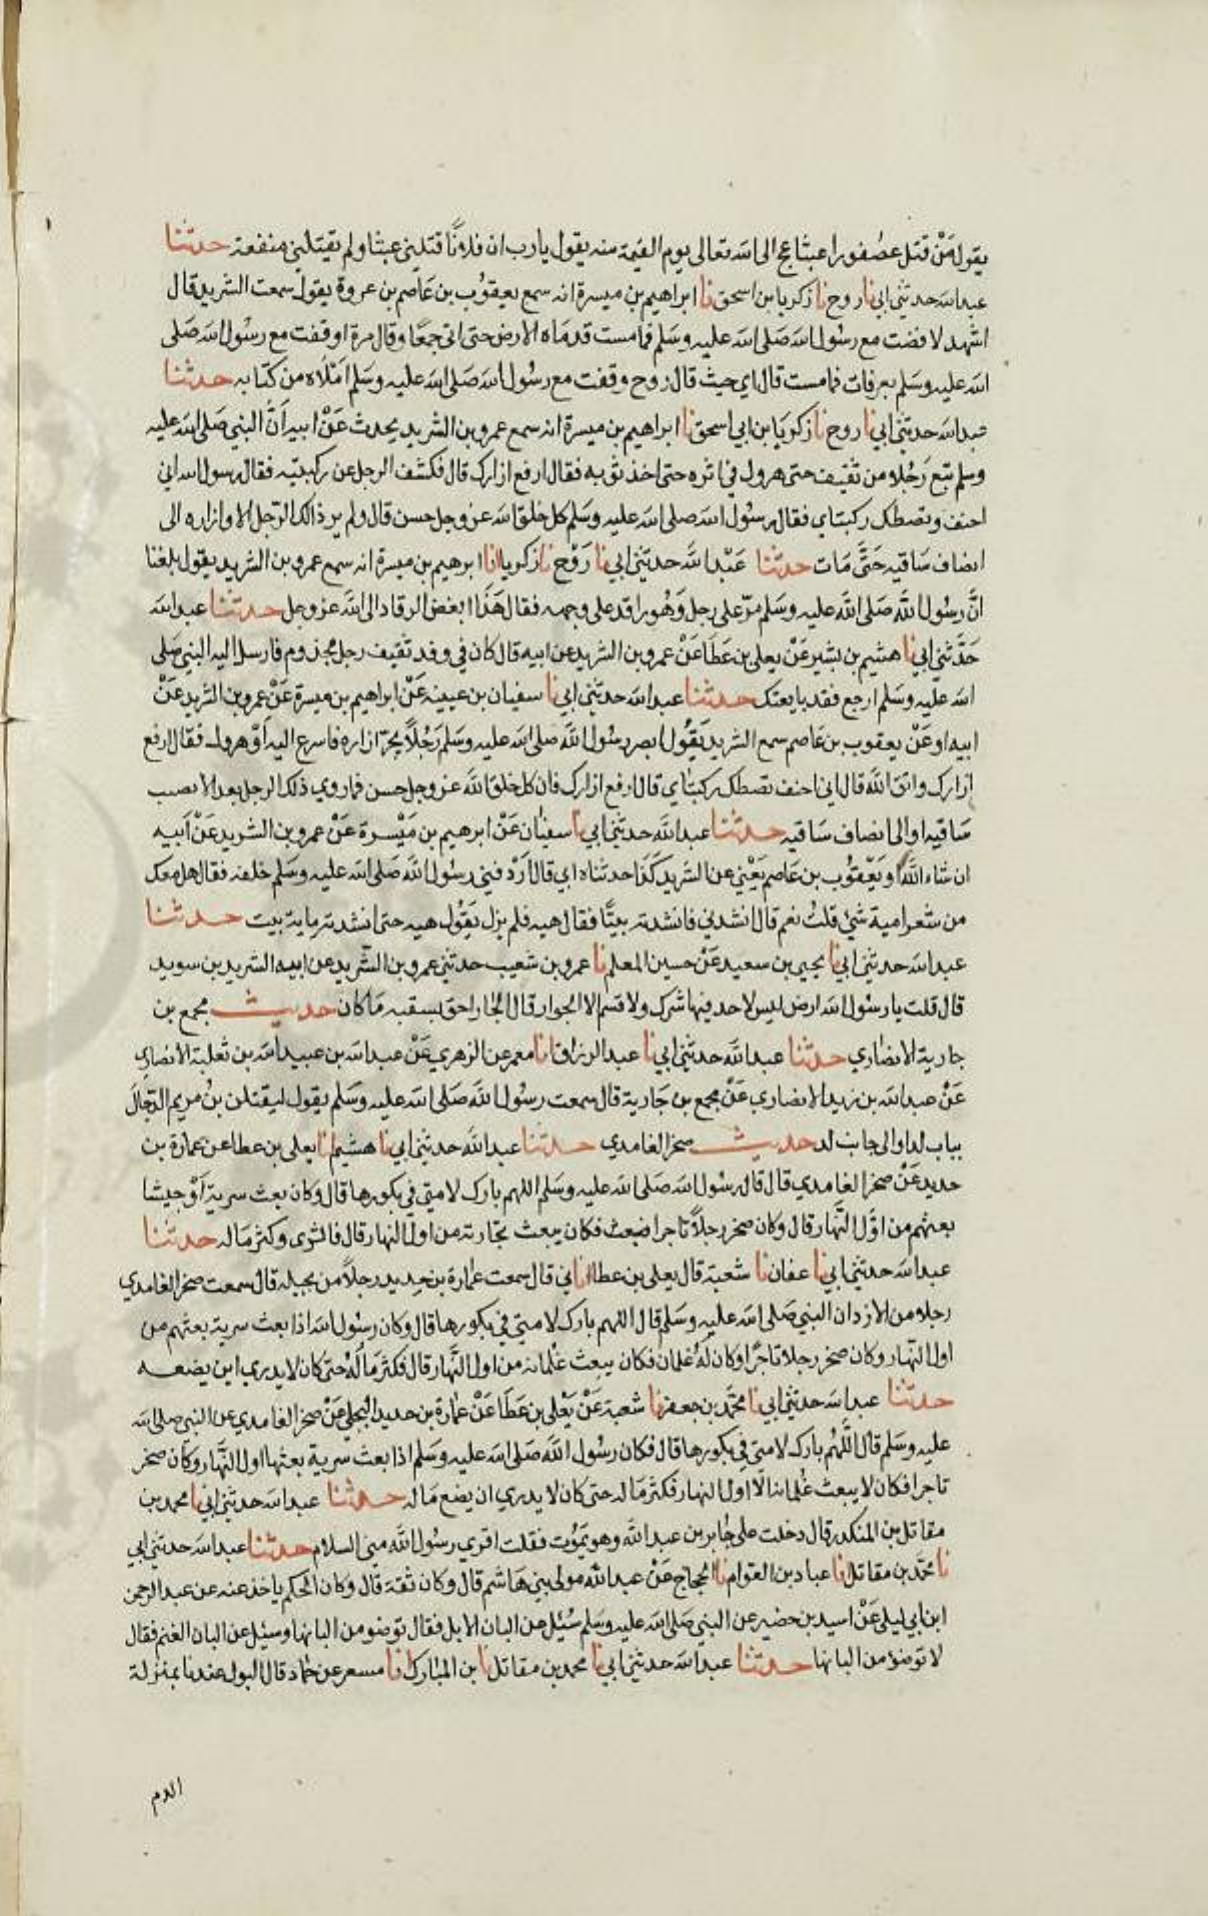 يقول مَنْ قتل عصفورا عبثا عج الى الله تعالى يوم القيمة منه يقول يارب ان فلانًا قتلني عبثا ولم يقتلني منفعة حدثنا
عبد الله حدثني ابي نا روح نا زكريا بن اسحق نا ابراهيم بن ميسرة انه سمع يعقوب بن عَاصم بن عروة يقول سمعت الشريد قال
اشهد لافضت مع رسُول الله صَلى الله عليه وسَلم فمامست قدمَاه الارض حتى اتى جمعًا وقال مرة اوقفت مع رسُول الله صَلى
الله عليه وسَلم بعرفات فما مست قال اي حيث قال روح وقفت مع رسُول الله صَلى الله عليه وسَلم امْلاه من كتابه حدثنا
عبد الله حدثني ابي نا روح نا زكريَا بن ابي اسحق نا ابراهيم بن ميسرة انه سمع عمرو بن الشريد يحدث عَنْ ابيه اَنَّ النبي صَلى الله عليه
وسلم تبع رَجُلا من ثقيف حتى هرول في اثره حتى اخذ ثوبه فقال ارفع ازارك قال فكشف الرجل عن ركبتيه فقال رسول الله اني
احنف وتصطك ركبتاي فقال رسُول الله صلى الله عليه وسَلم كل خلق الله عز وجل حسن قال ولم ير ذالك الرجل الا وازاره الى
انصاف سَاقيه حَتَّى مَات حدثنا عَبْد الله حدثني ابي نا رَوْح نا زكريا انا ابرهيم بن ميسرة انه سمع عمرو بن الشريد يقول بلغنا
انَّ رسُول اللّٰه صَلى اللّٰه عليه وسَلم مرّ على رجل وَهُو راقد على وجهه فقال هَذَا ابغض الرقاد الى اللّٰه عز وجل حدثنا عبد الله
حَدَّثني ابي نا هشيم بن بشير عَنْ يعلى بن عَطَا عَنْ عمرو بن الشريد عن ابيه قال كان في وفد ثقيف رجل مجذوم فارسل اليه النبي صَلى
الله عليه وسَلم ارجع فقد بايعتك حدثنا عبد الله حدثني ابي نا سفيان بن عيينه عَنْ ابراهيم بن ميسرة عَنْ عمرو بن الشريد عَنْ
ابيه او عَنْ يعقوب بن عَاصم سمع الشريد يَقُول ابصر رسُول اللّٰه صلى الله عليه وسَلم رَجُلاً يجرّ ازاره فاسرع اليه اَوْ هرول فقال ارفع
ازارك واتق اللّٰه قال اني احنف تصطك ركبتاي قال ارفع ازارك فان كل خلق اللّٰه عز وجل حسن فما روي ذلك الرجل بعد الا يصيب
سَاقيه او الى انصاف سَاقيه حدثنا عبد اللّٰه حدثني ابي نا سفيان عَنْ ابرهيم بن مَيْسرة عَنْ عمرو بن الشريد عَنْ اَبيه
ان شاء اللّٰه او يَعْقوُب بن عَاصم يَعْني عن الشريد كَذَا حدثناه ابي قال اَرْدفني رسُول اللّٰه صَلى الله عليه وسَلم خلفه فقال هل معك
من شعر امية شيئ قلتُ نعم قال انشدني فانشدته بيتًا فقال هيه فلم يزل يَقُول هيه حتى انشدته ماية بيت حدثنا
عبد الله حدثني ابي نا يحيي بن سعيد عَنْ حسين المعلم نا عمرو بن شعيب حدثني عمرو بن الشريد عن ابيه الشريد بن سويد
قال قلت يا رسُول الله ارض ليس لاحد فيها شرك ولا قسم الا الجوار قال الجار احق بسقبه مَا كان حديث مجمع بن
جارية الانصاري حدثنا عبد اللّٰه حدثني ابي نا عبد الرزاق انا معمر عن الزهري عَنْ عبد الله بن عبيد الله بن ثعلبة الانصاري
عَنْ عبد الله بن زيد الانصاري عَنْ مجمع بن جَارية قال سمعت رسُول اللّٰه صَلى الله عليه وسَلم يقول ليقتلن بنُ مريم الدجال
بباب لد او الى جانب لد حديث صخر الغامدي حدثنا عبد اللّٰه حدثني ابي نا هشيم انا يعلى بن عطا عن عمارة بن
حديد عَنْ صخر الغامدي قال قال رسُول الله صَلى الله عليه وسَلم اللهم بارك لامتي في بكورها قال وكان بعث سرية اَوْ جيشا
بعثهم من اوَّل النّهار قال وكان صخر رجلاً تاجرا فكان يبعث تجارته من اول النهار قال فاثرى وكثر مَاله حدثنا
عبد الله حدثني ابي نا عفان نا شعبة قال يعلى بن عطا اناني قال سمعت عمارة بن حديد رجلاً من بجيله قال سمعت صخر الغامدي
رجلا من الازد ان النبي صَلى الله عليه وسَلم قال اللهم بارك لامتي في بكورها قال وكان رسُول الله اذا بعث سرية بعثهم من
اول النهار وكان صخر رجلا تاجرًا وكان لَهُ غلمان فكان يبعث غلمانه من اول النَّهار قال فكثر مَالُهُ حتى كان لا يدري اين يضعه
حدثنا عبد الله حدثني ابي نا محمَّد بن جعفر نا شعبة عَنْ يَعْلى بن عَطَا عَنْ عمارة بن حديد البجلي عَنْ صخر الغامدي عن النبي صلى الله
عليه وسَلم قال اللّهم بارك لامتي في بكورها قال فكان رسُول اللّٰه صَلى الله عليه وسَلم اذا بعث سرية بعثها اول النَّهار وكَان صخر
تاجرا فكان لا يبعث غلمانه الَّا اول النهار فكثر مَاله حتى كان لا يدري ان يضع مَاله حدثنا عبد الله حدثني ابي نا محمد بن
مقاتل بن المنكدر قال دخلت على جابر بن عبد اللّٰه وهو يَمُوت فقلت اقرى رسُول اللّٰه مني السلام حدثنا عبد الله حدثني ابي
نا محمَّد بن مقاتل نا عباد بن العوام نا الحجاج عَنْ عبد اللّٰه مولى بني هَاشم قال وكان ثقة قال وكان الحكم ياخذ عنه عن عبد الرحمن
ابن ابي ليلى عَنْ اسيد بن حضير عن النبي صَلى الله عليه وسَلم سُئل عن البان الابل فقال توضو من البانها وسئل عن البان الغنم فقال
لا توضوْ من البانها حدثنا عبد الله حدثني ابي نا محمد بن مقاتل نا بن المبارك انا مسعر عن حماد قال البول عندنا بمنزلة
الدم